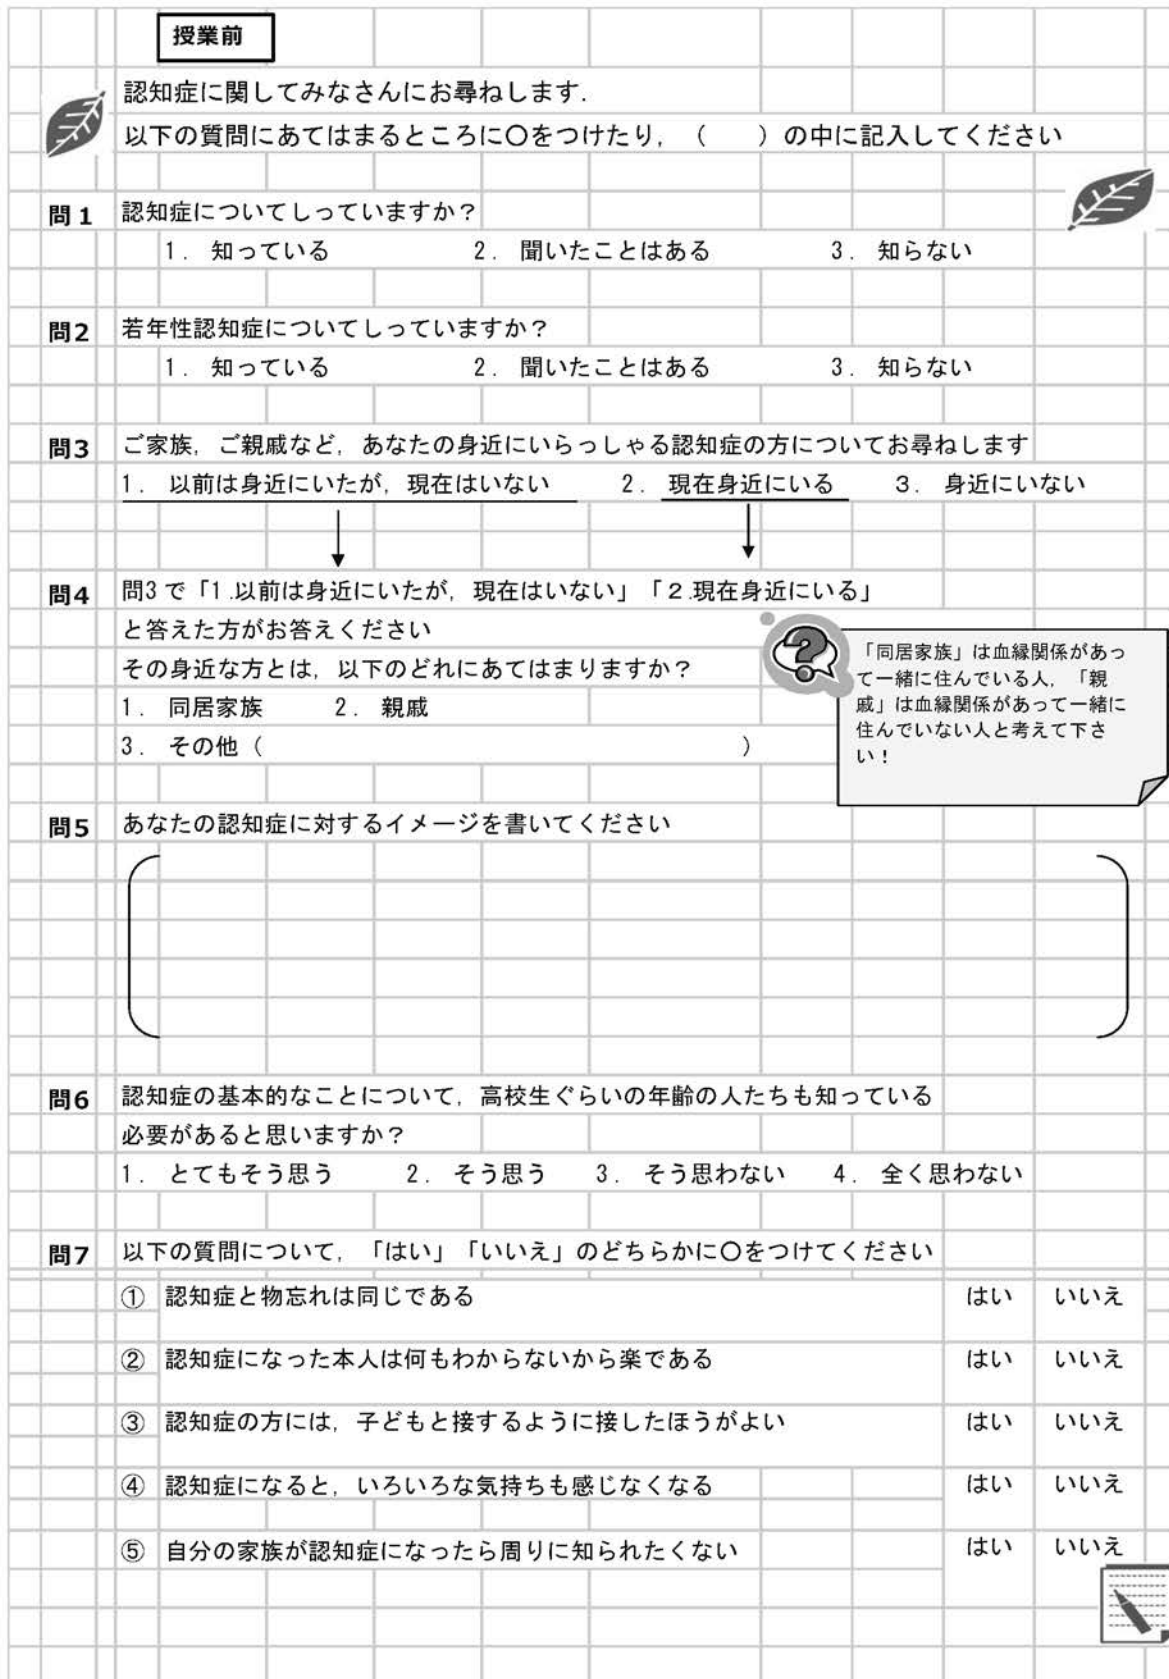 授業前
認知症に関してみなさんにお尋ねします.
以下の質問にあてはまるところに〇をつけたり，（　　）の中に記入してください
問1 認知症についてしっていますか？
1. 知っている 2. 聞いたことはある 3. 知らない
問2 若年性認知症についてしっていますか？
1. 知っている 2. 聞いたことはある 3. 知らない
問3 ご家族，ご親戚など，あなたの身近にいらっしゃる認知症の方についてお尋ねします
1. 以前は身近にいたが，現在はいない 2. 現在身近にいる 3. 身近にいない
問4 問3で「1.以前は身近にいたが，現在はいない」「2.現在身近にいる」
と答えた方がお答えください
その身近な方とは，以下のどれにあてはまりますか？
1. 同居家族 2. 親戚
3. その他（　　　　　　　　　　）
「同居家族」は血縁関係があっ
て一緒に住んでいる人，「親
戚」は血縁関係があって一緒に
住んでいない人と考えて下さ
い！
問5 あなたの認知症に対するイメージを書いてください
問6 認知症の基本的なことについて，高校生ぐらいの年齢の人たちも知っている
必要があると思いますか？
1. とてもそう思う 2. そう思う 3. そう思わない 4. 全く思わない
問7 以下の質問について，「はい」「いいえ」のどちらかに〇をつけてください
① 認知症と物忘れは同じである はい いいえ
② 認知症になった本人は何もわからないから楽である はい いいえ
③ 認知症の方には，子どもと接するように接したほうがよい はい いいえ
④ 認知症になると，いろいろな気持ちも感じなくなる はい いいえ
⑤ 自分の家族が認知症になったら周りに知られたくない はい いいえ